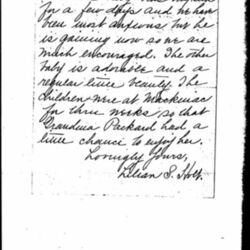 for a few days and we have
been most anxious, but he
is gaining now so we are
much encouraged. The other
baby is adorable and a
regular little beauty. The
children were at Mackinac
for three weeks so that
Grandma Packard had a
little chance to enjoy her.
Lovingly Yours,
Lilian S. Holt.